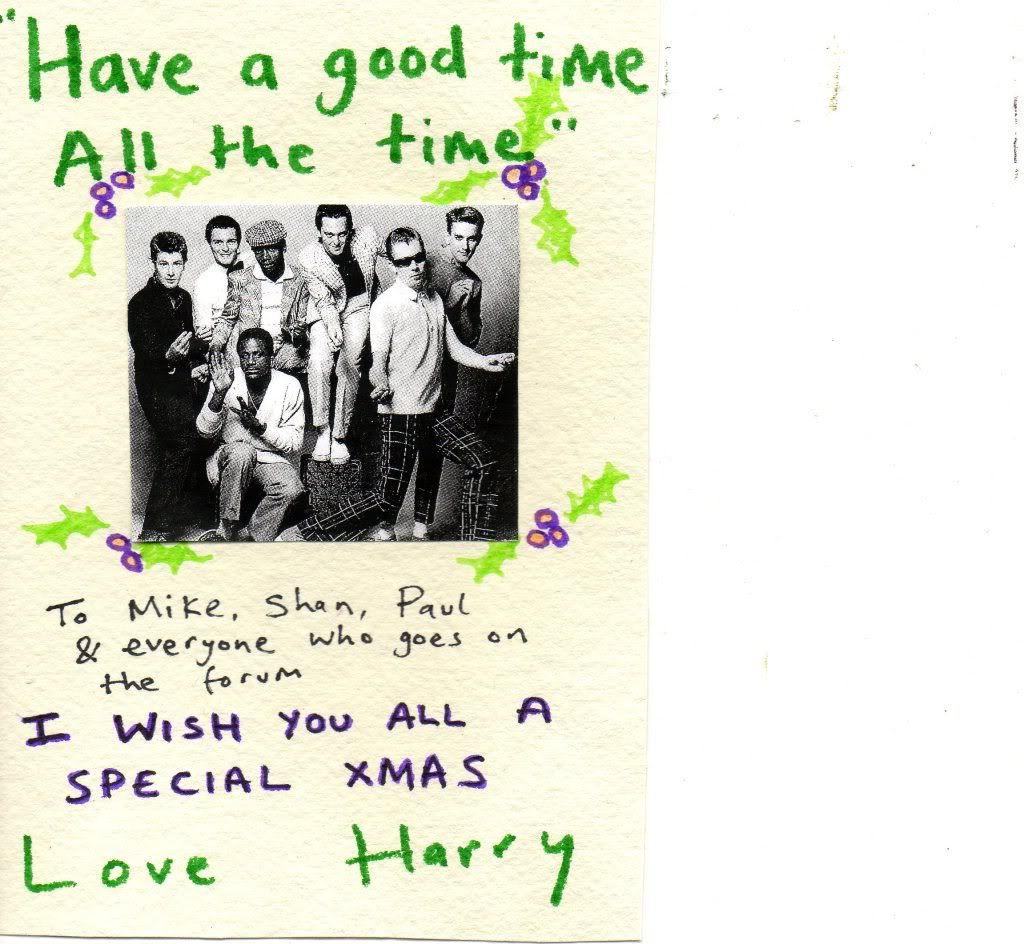 "Have a good time
All the time"
To Mike, Shan, Paul
& everyone who goes on
the forum
I WISH YOU ALL A
SPECIAL XMAS
Love Harry